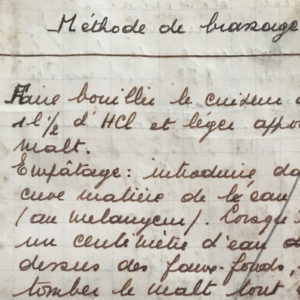 Méthode de brassage
Faire bouillir le cuiseur
1 l ½ d'HCl et léger appo
malt.
Empâtage: introduire da
cuve matière de l'eau
(au mélangeur). Lorsque
un centimètre d'eau
dessus des faux-fonds,
tomber le malt tout